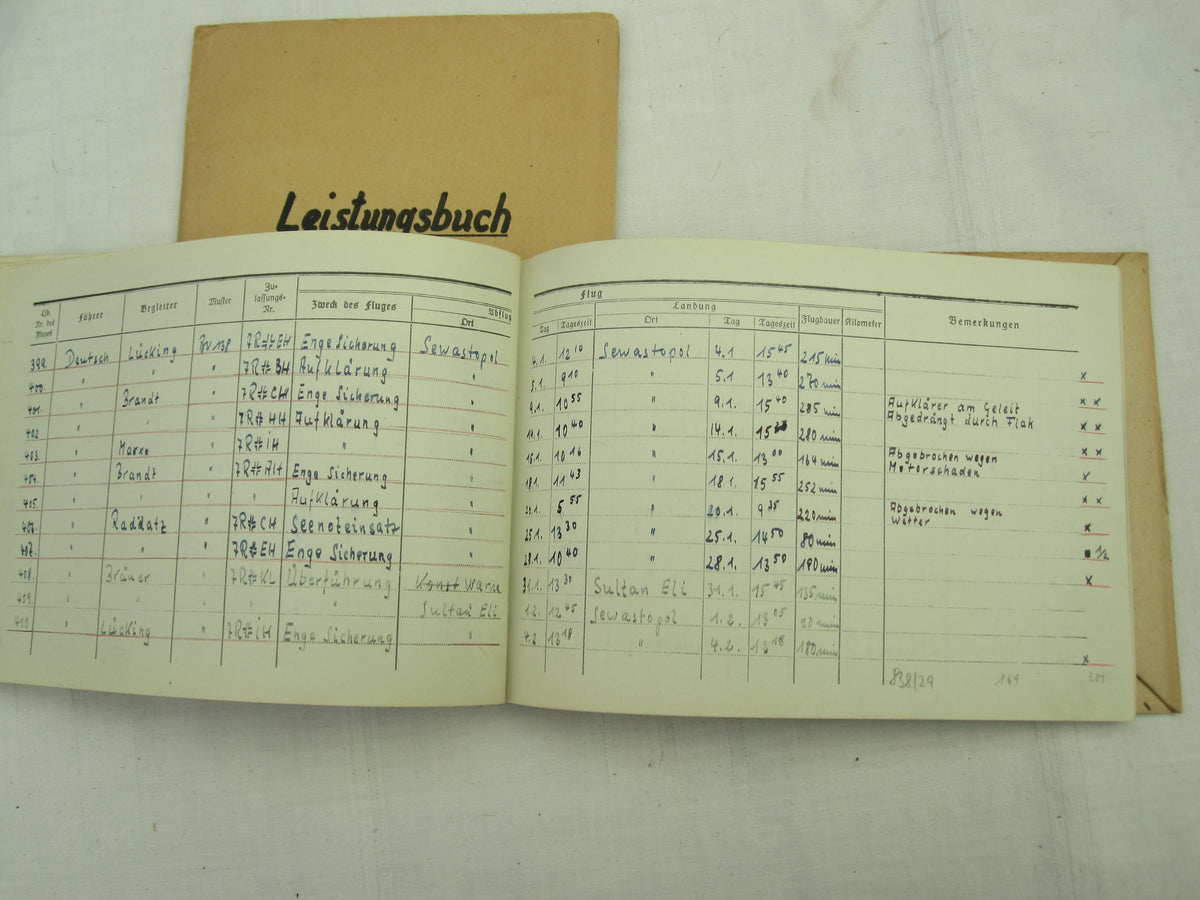 Leistungsbuch
Lfd. Nr. des Fluges Führer Begleiter Muster Zu- lassungs- Nr. Zweck des Fluges Abflug Ort
Flug
Tag Tageszeit Landung Ort Tag Tageszeit Flugdauer Kilometer Bemerkungen
399. Deutsch Lücking BV 138 7R+EH Enge Sicherung Sewastopol 4.1. 12 10 Sewastopol 4.1. 15 45 215 min x
400. " " " 7R+BH Aufklärung " 5.1. 9 10 " 5.1 13 40 270 min x x
401. " Brandt " 7R+CH Enge Sicherung 9.1. 10 55 " 9.1. 15 40 285 min Aufklärer am Geleit
402 " " " 7R+HH Aufklärung 14.1. 10 40 " 14.1. 15 280 min Abgedrängt durch Flak x x
403. " 7R+iH " 15.1. 10 16 " 15.1. 13 00 164 min Abgebrochen wegen Motorschaden x x
404. " Brandt " 7R+AH Enge Sicherung 18.1. 11 43 18.1. 15 55 252 min x
405. " " " " Aufklärung 20.1. 5 55 " 20.1. 9 35 220 min Abgebrochen wegen Wetter x x
406. " Raddatz " 7R+CH Seenoteinsatz 25.1. 13 30 " 25.1. 14 50 80 min x
407. " " " 7R+EH Enge Sicherung 28.1. 10 40 " 28.1. 13 50 190 min 1/2
408. " Bräuer " 7R+KL Überführung Warna 31.1. 13 30 Sultan Eli 31.1. 15 45 135 min x
409. " " " " " Sultan Eli 1.2. 12 45 Sewastopol 1.2. 13 05 20 min
410 " Lücking " 7R+iH Enge Sicherung " 4.2 13 18 " 4.2. 180 min x
838/29 169